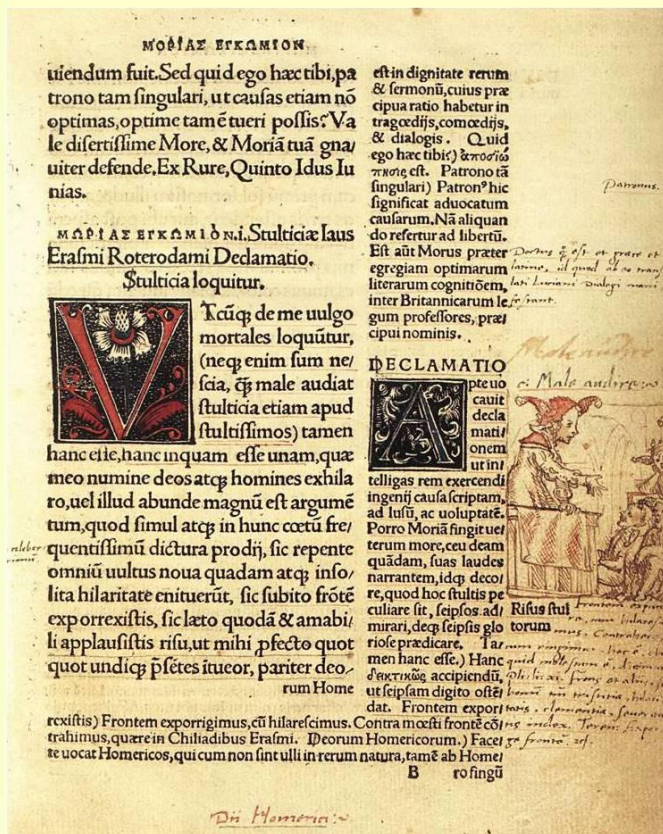 ΜΩΡΙΑΣ ΕΓΚΩΜΙΟΝ
uiendum fuit. Sed quid ego hæc tibi, pa
trono tam singulari, ut causas etiam nõ
optimas, optime tamẽ tueri possis? Va
le disertissime More, & Moriã tuã gna/
uiter defende, Ex Rure, Quinto Idus Iu
nias.
ΜΩΡΙΑΣ ΕΓΚΩΜΙΟΝ.i. Stulticiæ laus
Erasmi Roterodami Declamatio.
Stulticia loquitur.
VTcũq; de me uulgo
mortales loquũtur,
(neq; enim sum ne/
scia, q̃ male audiat
stulticia etiam apud
stultissimos) tamen
hanc esse, hanc inquam esse unam, quæ
meo numine deos atq; homines exhila
ro, uel illud abunde magnũ est argumẽ
tum, quod simul atq; in hunc cœtũ fre/
quentissimũ dictura prodij, sic repente
omniũ uultus noua quadam atq; inso/
lita hilaritate enituerũt, sic subito frõtẽ
exporrexistis, sic læto quodã & amabi/
li applausistis risu, ut mihi ꝓfecto quot
quot undiq; p̃sẽtes ĩtueor, pariter deo/
rum Home
est in dignitate rerum
& sermonũ, cuius præ
cipua ratio habetur in
tragœdijs, comœdijs,
& dialogis. Quid
ego hæc tibi?) ἀποσιώ
πησις est. Patrono tã
singulari) Patronꝰ hic
significat aduocatum
causarum. Nã aliquan
do refertur ad libertũ.
Est aũt Morus præter
egregiam optimarum
literarum cognitiõem,
inter Britannicarum le
gum professores, præ/
cipui nominis.
DECLAMATIO
Apte uo
cauit
decla
mati/
onem
ut in/
telligas rem exercendi
ingenij causa scriptam,
ad lusũ, ac uoluptatẽ.
Porro Moriã fingit ue/
terum more, ceu deam
quãdam, suas laudes
narrantem, idq; deco/
re, quod hoc stultis pe
culiare sit, seipsos ad/
mirari, deq; seipsis glo
riose prædicare. Ta/
men hanc esse.) Hanc
δεικτικῶς accipiendũ,
ut seipsam digito ostẽ
dat. Frontem expor/
rexistis) Frontem exporrigimus, cũ hilarescimus. Contra mœsti frontẽ cõ/
trahimus, quære in Chiliadibus Erasmi. Deorum Homericorum.) Face/
te uocat Homericos, qui cum non sint ulli in rerum natura, tamẽ ab Home/
B ro fingũ
Patronus.
Male audire
Risus stul
torum
Dii Homerici